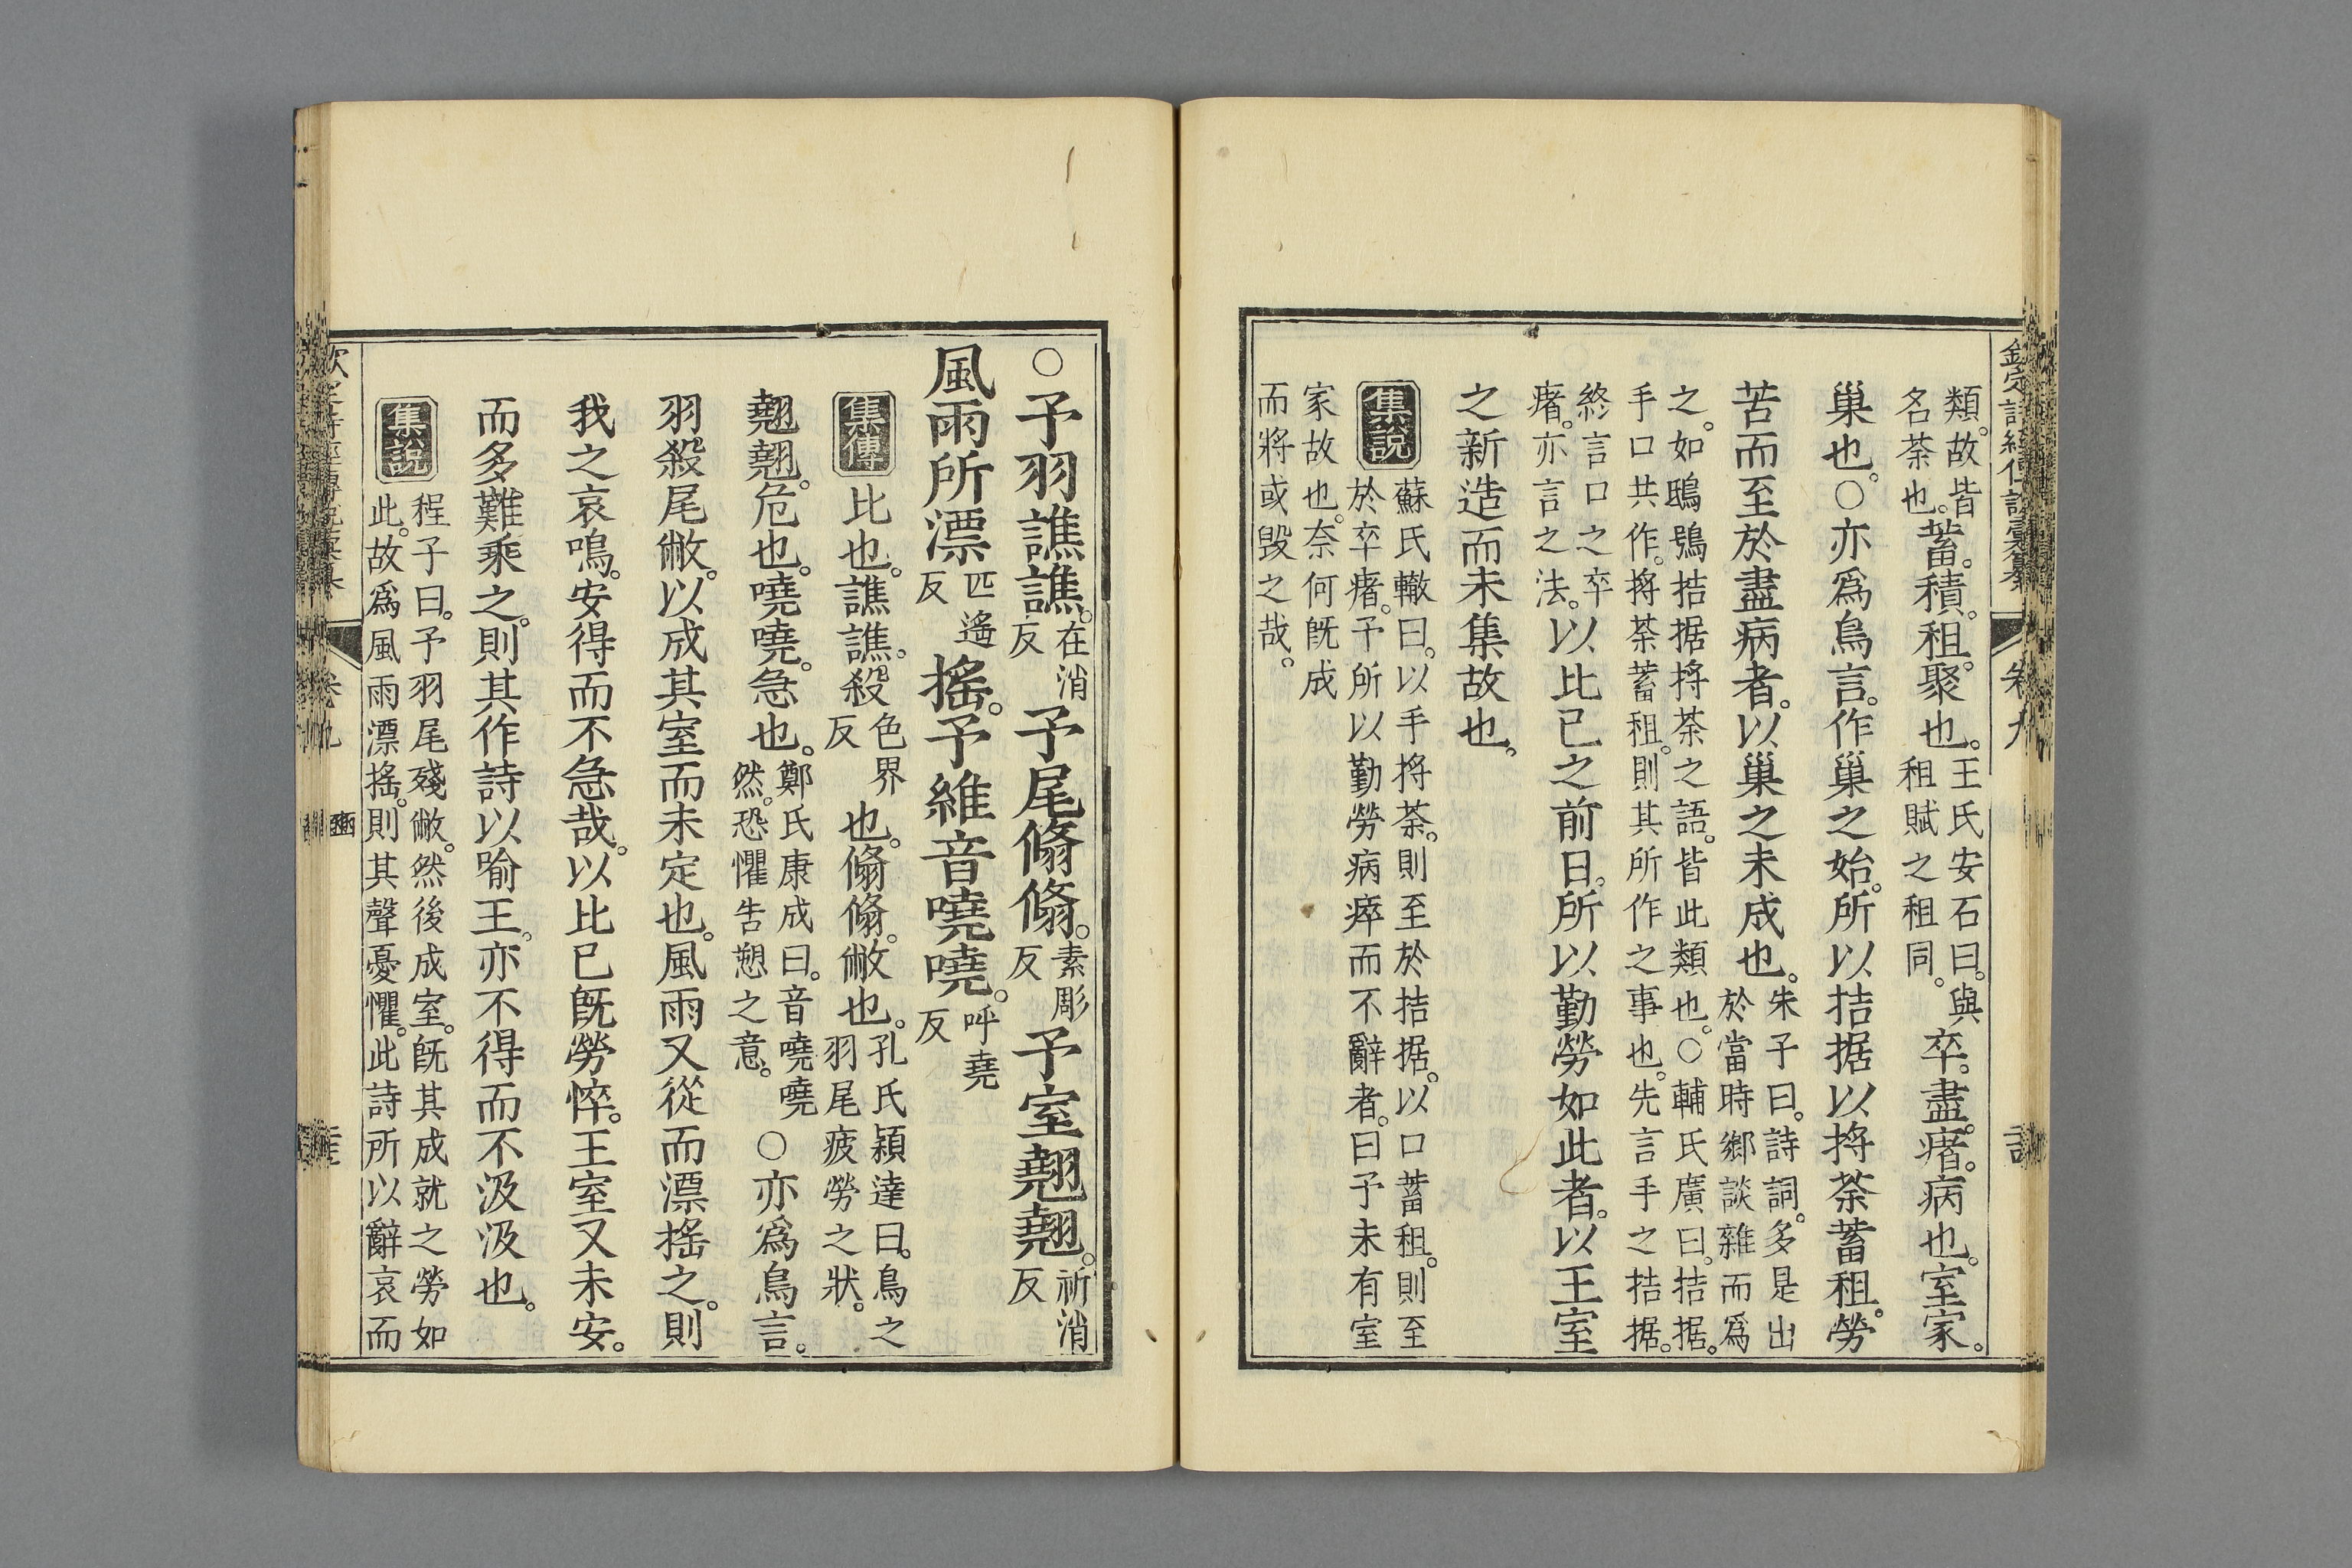 類。故皆
名荼也。
蓄。積。租。聚也。
王氏安石曰。與
租賦之租同。
卒。盡。瘏。病也。室家。
巢也。○亦爲鳥言。作巢之始。所以拮据以捋荼蓄租。勞
苦而至於盡病者。以巢之未成也。
朱子曰。詩詞。多是出
於當時鄉談雜而爲
之。如鴟鴞拮据捋荼之語。皆此類也。○輔氏廣曰。拮据。
手口共作。捋荼蓄租。則其所作之事也。先言手之拮据。
終言口之卒
瘏。亦言之法。
以比己之前日。所以勤勞如此者。以王室
之新造而未集故也。
集說
蘇氏轍曰。以手捋荼。則至於拮据。以口蓄租。則至
於卒瘏。予所以勤勞病瘁而不辭者。曰予未有室
家故也。奈何旣成
而將或毀之哉。
○予羽譙譙。
在消
反
予尾翛翛。
素彫
反
予室翹翹。
祈消
反
風雨所漂
匹遙
反
搖。予維音嘵嘵。
呼堯
反
集傳
比也。譙譙。殺
色界
反
也。翛翛。敝也。
孔氏穎達曰。鳥之
羽尾疲勞之狀。
翹翹。危也。嘵嘵。急也。
鄭氏康成曰。音嘵嘵
然。恐懼告愬之意。
○亦爲鳥言。
羽殺尾敝。以成其室而未定也。風雨又從而漂搖之。則
我之哀鳴。安得而不急哉。以比己旣勞悴。王室又未安。
而多難乘之。則其作詩以喻王。亦不得而不汲汲也。
集說
程子曰。予羽尾殘敝。然後成室。旣其成就之勞如
此。故爲風雨漂搖。則其聲憂懼。此詩所以辭哀而